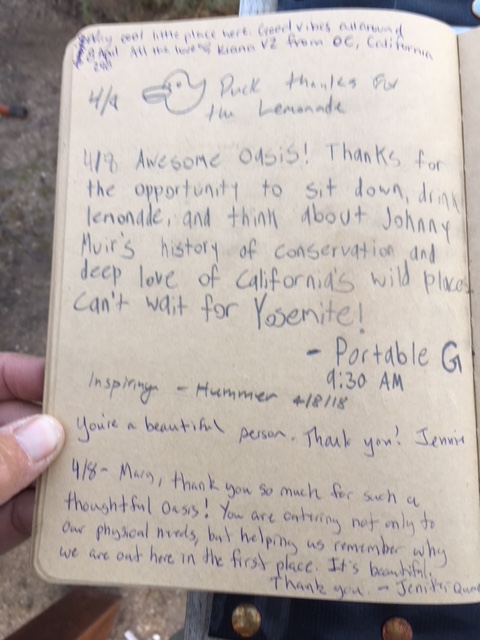 Very cool little place here. Good vibes all around
All the love Kiana V2 from OC, California
4/8 Duck thanks for
the Lemonade
4/8 Awesome Oasis! Thanks for
the opportunity to sit down, drink
lemonade, and think about Johnny
Muir's history of conservation and
deep love of California's wild places
Can't wait for Yosemite!
- Portable G
9:30 AM
Inspiring - Hummer 4/8/18
You're a beautiful person. Thank you! Jennie
4/8 - Mary, thank you so much for such a
thoughtful Oasis! You are catering not only to
our physical needs, but helping us remember why
we are out here in the first place. It's beautiful.
Thank you. -